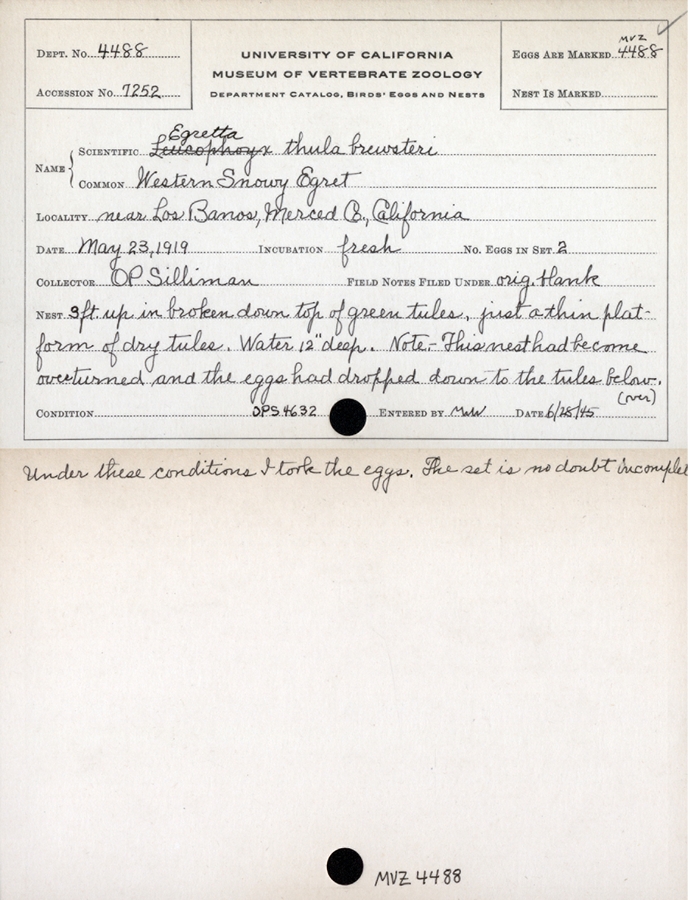 MVZ
Dept. No. 4488
UNIVERSITY OF CALIFORNIA
Eggs Are Marked 4488
MUSEUM OF VERTEBRATE ZOOLOGY
Accession No. 7252
Department Catalog, Birds' Eggs and Nests
Nest Is Marked
Egretta
Name Scientific Leucophoyx thula brewsteri
Common Western Snowy Egret
Locality near Los Banos, Merced Co., California
Date May 23, 1919 Incubation fresh No. Eggs in Set 2
Collector OP Silliman Field Notes Filed Under orig. blank
Nest 3ft. up in broken down top of green tules, just a thin plat-
form of dry tules. Water 12" deep. Note.- This nest had become
overturned and the eggs had dropped down to the tules below.
(over)
Condition OPS 4632 Entered by MWW Date 6/28/45
Under these conditions I took the eggs. The set is no doubt incomplet
MVZ 4488